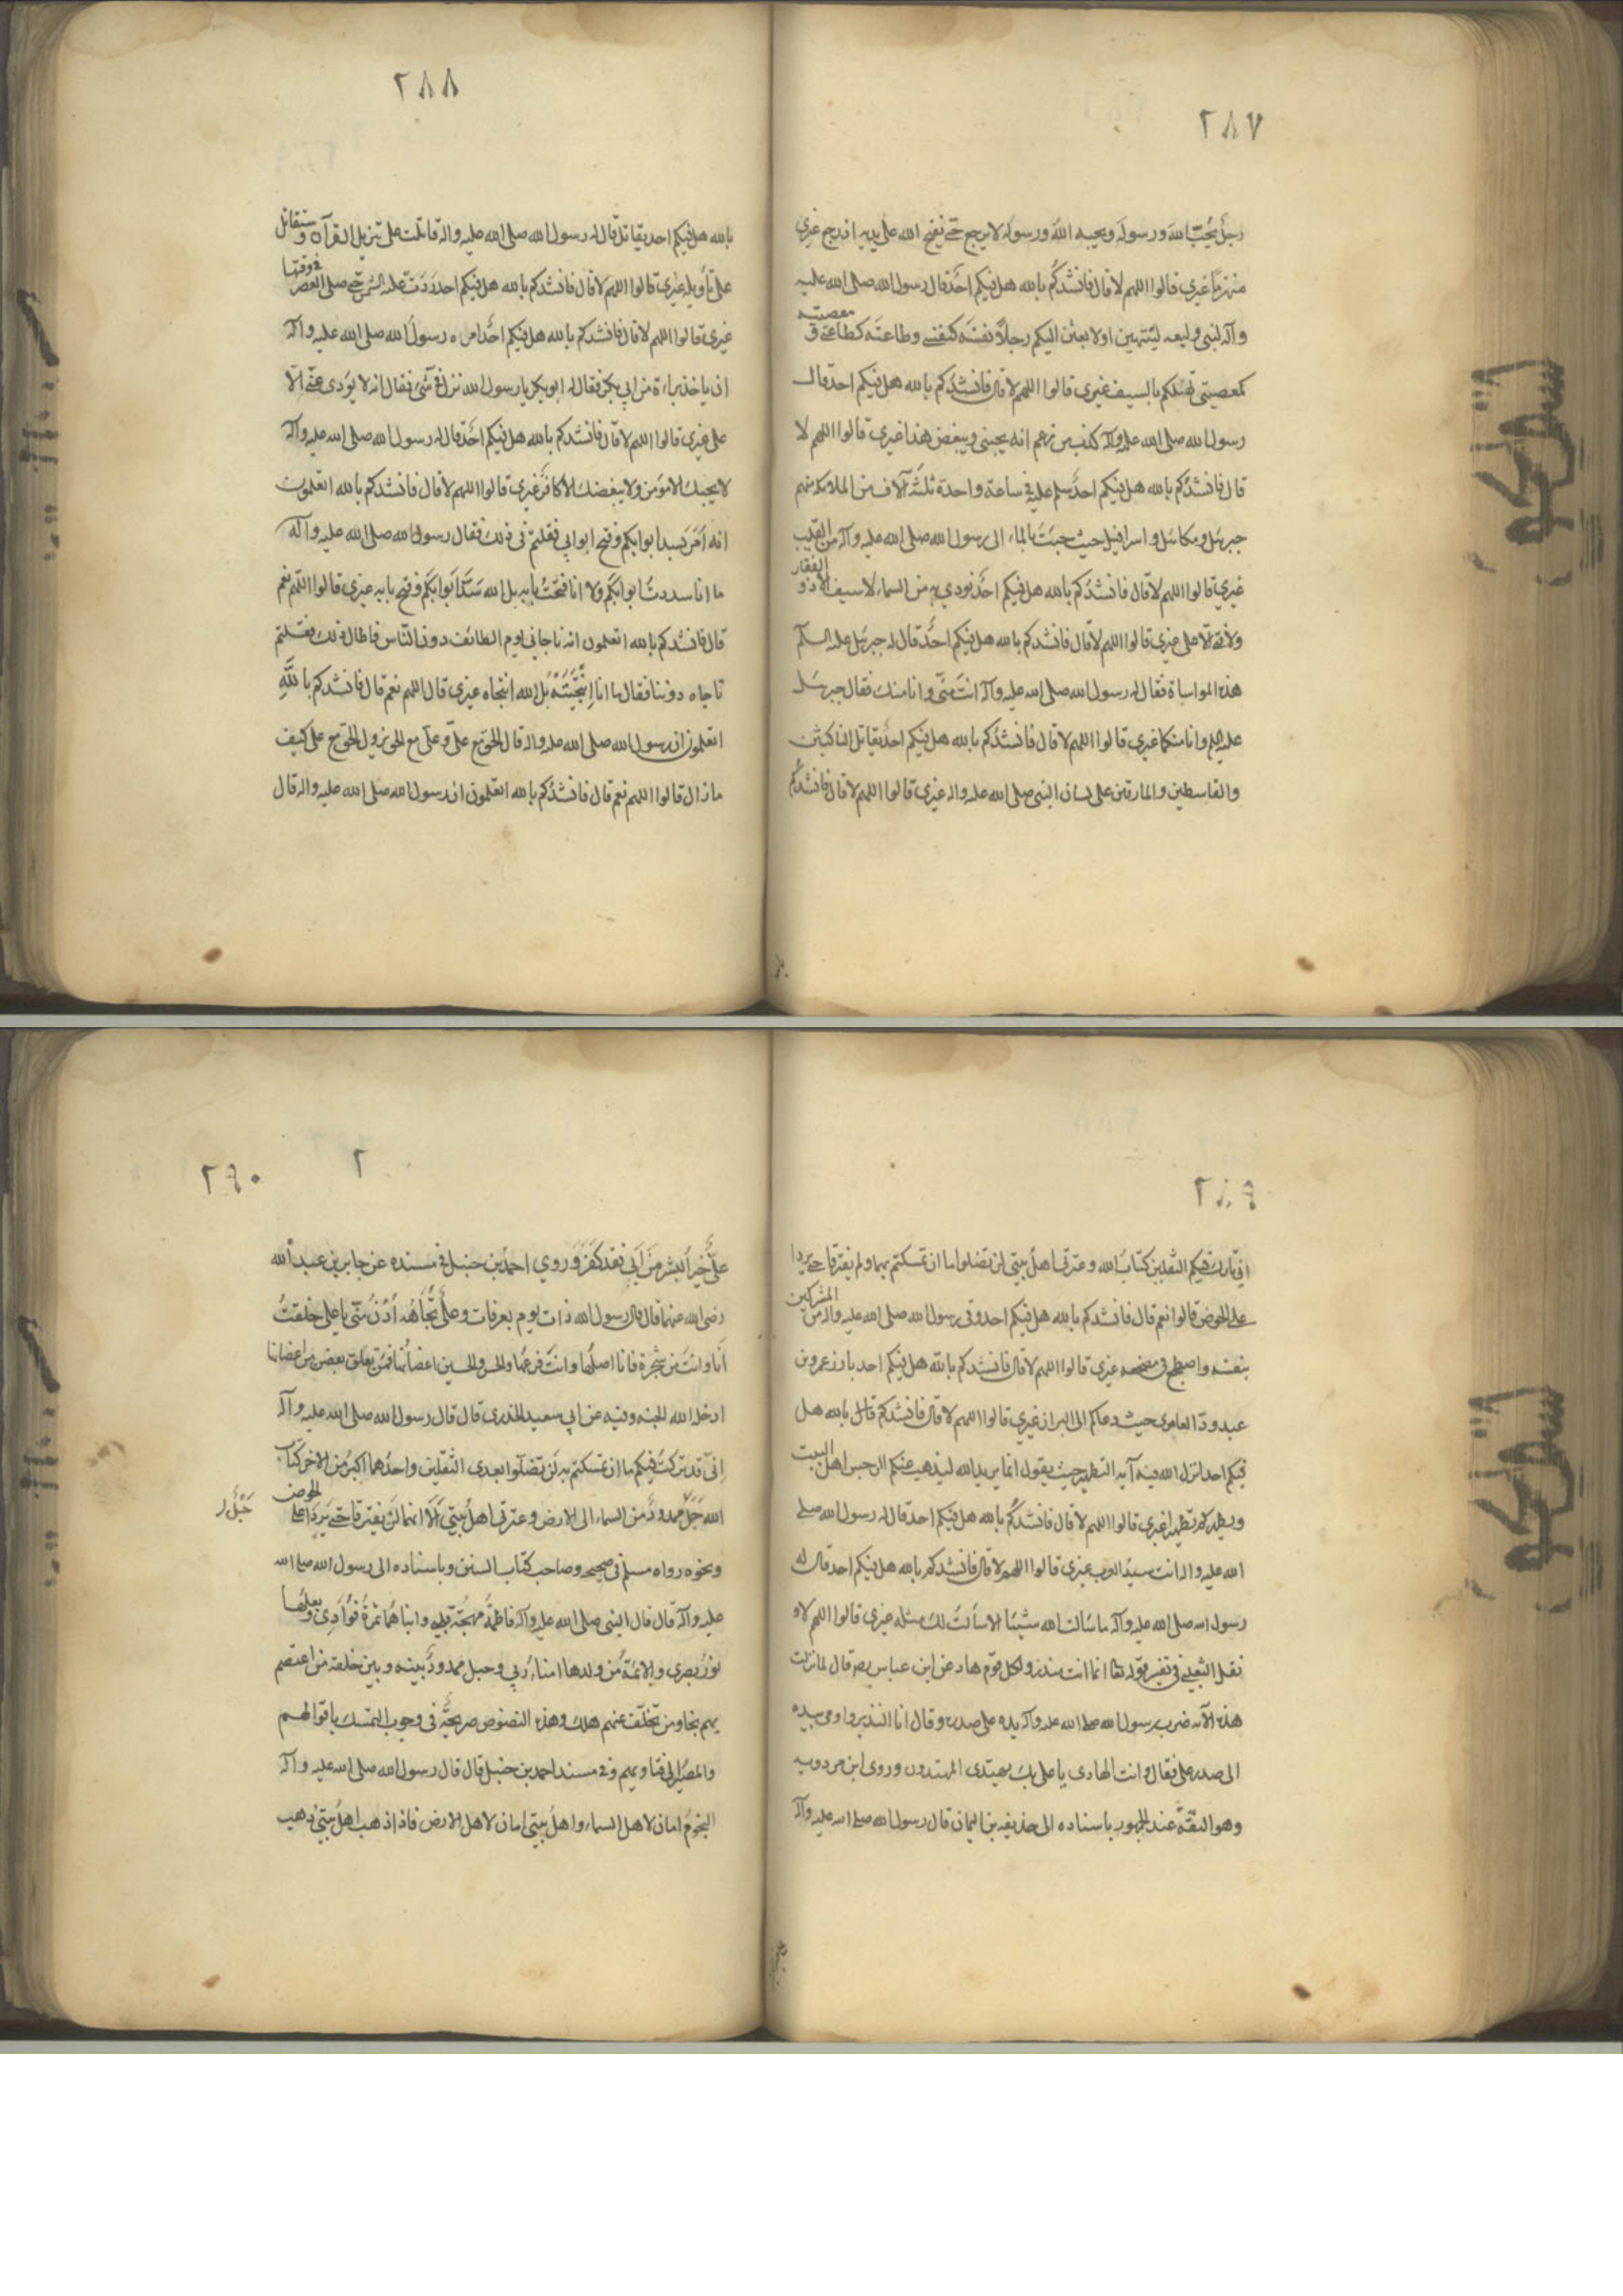 ٢٨٧
رجلٌ يُحبّ اللهَ ورسولَه ويحبه اللهُ ورسولُه لا يرجع حتّى يفتح الله على يديه اذ رجع غيري
منهزمًا غيري قالوا اللهم لا قال فانشدُكُم بالله هل فيكم احَدٌ قال رسول الله صلى الله عليه
وآله لبنى وليعه لتنتهين او لابعثن اليكم رجلًا نفسَه كنفسى وطاعتَه كطاعتى و معصيته
كمعصيتى بالسيف غيرى قالوا اللهم لا قال فانشدُكم بالله هل فيكم احد قال
رسول الله صلى الله عليه وآله كذب من زعم انه يحبنى ويبغض هذا غيرى قالوا اللهم لا
قال فانشدُكم بالله هل فيكم احدٌ سلم عليه فى ساعة واحدة ثلثَة آلاف من الملائكة منهم
جبرئيل وميكائيل و اسرافيل حيث جئتَ بالماء الى رسول الله صلى الله عليه وآله من القليب
غيرى قالوا اللهم لا قال فانشدُكم بالله هل فيكم احدٌ نودي به من السماء لا سيف الا ذو الفقار
ولا فتى الا على غيرى قالوا اللهم لا قال فانشدكم بالله هل فيكم احدٌ قال له جبرئيل عليه السلم
هذه المواساة فقال له رسول الله صلى الله عليه وآله انت منّى وانا منك فقال جبرئيل
عليه السلم وانا منكما غيرى قالوا اللهم لا قال فانشدُكم بالله هل فيكم احدٌ يقاتل الناكثين
والقاسطين والمارقين على لسان النبى صلى الله عليه واله غيرى قالوا اللهم لا قال فانشدُكُم
٢٨٨
بالله هل فيكم احد يقاتل قال له رسول الله صلى الله عليه واله قاتلت على تنزيل القرآن وستقاتل
على تأويله غيرى قالوا اللهم لا قال فانشدكم بالله هل فيكم احد رَدّت عليه الشمس حتى صلى العصر فى وقتها
غيرى قالوا اللهم لا قال فانشدكم بالله هل فيكم احدٌ امره رسولُ الله صلى الله عليه وآله
ان ياخذ براءة من ابي بكر فقال له ابوبكر يا رسول الله نزل فىّ شىء فقال انه لا يؤدى عنّى الّا
على غيرى قالوا اللهم لا قال فانشدكم بالله هل فيكم احَدٌ قال له رسول الله صلى الله عليه وآله
لا يحبك الا مؤمن ولا يبغضك الا كافر غيري قالوا اللهم لا قال فانشدكم بالله اتعلمون
انه اَمَرَ بسد ابوابكم وفتح ابوابي فقلتم فى ذلك فقال رسول الله صلى الله عليه وآله
ما انا سددتُ ابوابكم ولا انا فتحتُ بابه بل الله سَدّ ابوابكم وفتح بابه غيرى قالوا اللهم نعم
قال فانشدكم بالله اتعلمون انه ناجانى يوم الطائف دون النّاس فاطال ذلك فقلتم
ناجاه دوننا فقال ما انا اِنتَجَيتُه بل الله انتجاه غيرى قال اللهم نعم قال فانشدكم باللهِ
اتعلمون ان رسول الله صلى الله عليه واله قال الحق مع علىّ وعلىّ مع الحق يزول الحق مع على كيف
ما زال قالوا اللهم نعم قال فانشدُكم بالله اتعلمون ان رسول الله صلى الله عليه واله قال
٢٨٩
انى تارك فيكم الثقلين كتابَ الله وعترتى اهلَ بيتى لن تضلوا ما ان تمسكتم بهما ولم يفترقا حتى يردا
على الحوض قالوا نعم قال فانشدكم بالله هل فيكم احد وقى رسول الله صلى الله عليه واله من المشركين
بنفسه واضطجع فى مضجعه غيرى قالوا اللهم لا قال فانشدكم بالله هل فيكم احد بارز عمرو بن
عبد ودّ العامرى حيث دعاكم الى البراز غيرى قالوا اللهم لا قال فانشدكم بالله هل
فيكم احد انزل الله فيه آية التطهير حيث يقول انما يريد الله ليذهب عنكم الرجس اهل البيت
ويطهركم تطهيرا غيرى قالوا اللهم لا قال فانشدُكُم بالله هل فيكم احد قال له رسول الله صلى
الله عليه واله انت سيدُ العرب غيرى قالوا اللهم لا قال فانشدكم بالله هل فيكم احد قال له
رسول الله صلى الله عليه وآله ما سَالت الله شيئًا الا سألتُ لك مثله غيرى قالوا اللهم لا و
نقل الثعلبى فى تفسير قوله تعا انما انت منذر ولكل قوم هاد عن ابن عباس رضه قال لما نزلت
هذه الآية ضرب رسول الله صلى الله عليه وآله يده على صدره وقال انا النذير واومى بيده
الى صدر على فقال وانت الهادى يا على بك يهتدى المهتدون وروى ابن مردويه
وهو الثقة عند الجمهور باسناده الى حذيفه بن اليمان قال رسول الله صلى الله عليه وآله
٢٩٠
٢
علىٌّ خيرُ البشر مَن اَبى فقد كَفَرَ وَروي احمدُ بن حنبل فى مسنده عن جابر بن عبد الله
رضى الله عنهما قال قال رسول الله ذات يوم بعرفات وعلىٌّ تُجاهَه اُدْنُ منّى يا على خلقتُ
اَنا وانتَ من شجرة فانا اصلُها وانتَ فرعُها والحسن والحسين اغصانُها فمن تعلق بغصن من اغصانها
ادخله الله الجنه وفيه عن ابي سعيد الخدرى قال قال رسول الله صلى الله عليه وآله
اِنّى قد تركتُ فيكم ما ان تمسكتم به لَن تضلّوا بعدى الثقلين واحدُهما اكبرُ من الآخر كتاب
الله حَبْلٌ ممدودٌ من السماء الى الارض وعترتى اهلُ بيتى اَلَا انهما لن يفترقا حتى يَرِدَا علىّ الحوض
حَبْلٌ
ونحوه رواه مسلم فى صحيحه وصاحب كتاب السنن وباسناده الى رسول الله صلى الله
عليه وآله قال قال النبى صلى الله عليه وآله فاطمةُ مهجَةُ قلبى وابناها ثمرةُ فؤادى وبعلها
نورُ بصرى والائمةُ من ولدها امناءُ ربى وحبل ممدودٌ بينه وبين خلقه من اعتصم
بهم نجا ومن تخلّف عنهم هلك وهذه النصوص صريحةٌ فى وجوب التمسك باقوالهم
والمصير الى فتاويهم وفى مسند احمد بن حنبل قال قال رسول الله صلى الله عليه وآله
النجومُ امان لاهل السماء واهلُ بيتى امان لاهل الارض فاذا ذهب اهلُ بيتى ذهب